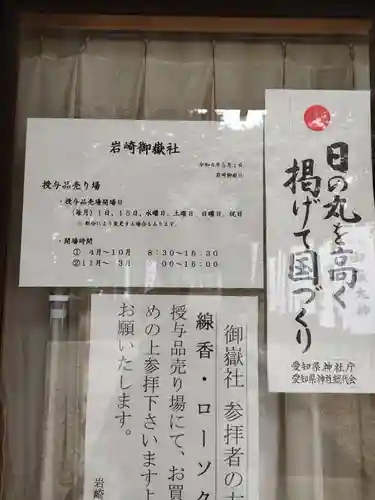 岩崎御嶽社
岩崎御嶽社
授与品売り場
・授与品売場開場日
(毎月)1日、15日、水曜日、土曜日、日曜日、祝日
※都合により変更する場合もあります。
・開場時間
① 4月～10月 8:30～16:30
②11月～ 3月 :00～16:00
日の丸を高く
掲げて国づくり
愛知県神社庁
愛知県神社総代会
御嶽社 参拝者の
線香・ローソク
授与品売り場にて、お買
めの上参拝下さいますよ
お願いたします。
岩崎